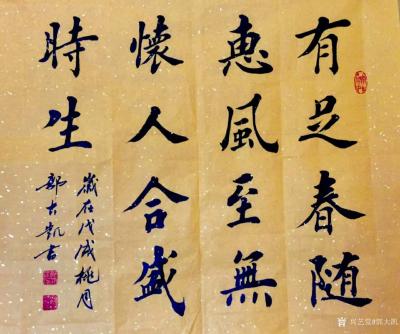 有足春随
惠風至無
懷人合盛
時生
歲在戊戌桃月
郭大凯书
兴艺堂@郭大凯